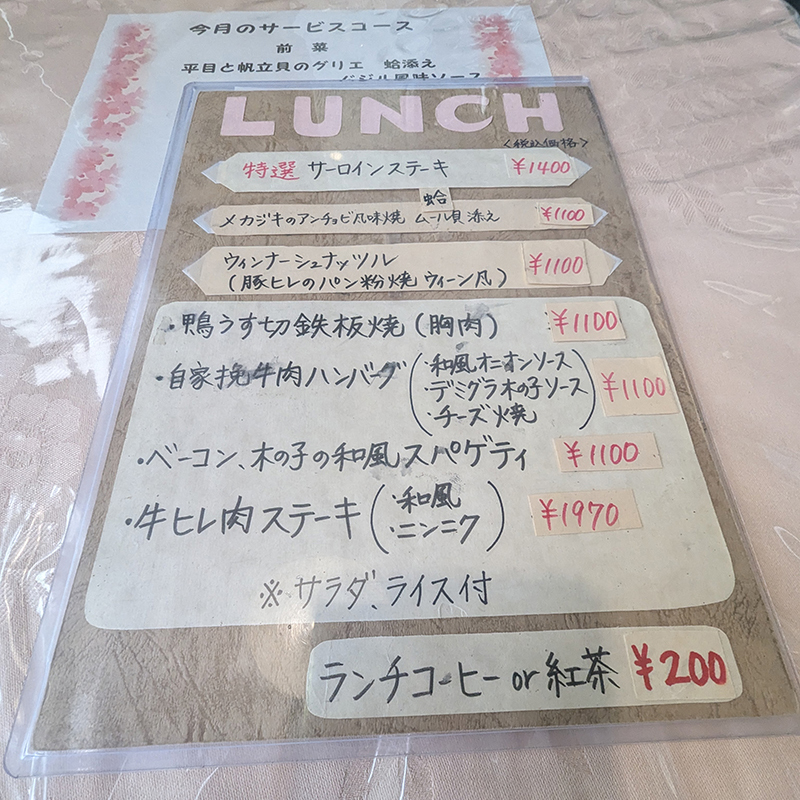 今月のサービスコース
前菜
平目と帆立貝のグリエ 蛤添え
バジル風味ソース
LUNCH
<税込価格>
特選 サーロインステーキ ¥1400
蛤
メカジキのアンチョビ風味焼 ムール貝添え ¥1100
ウィンナーシュナッツル ¥1100
(豚ヒレのパン粉焼 ウィーン風)
・鴨うす切鉄板焼(胸肉) ¥1100
・自家挽牛肉ハンバーグ ¥1100
・和風オニオンソース
・デミグラ木の子ソース
・チーズ焼
・ベーコン、木の子の和風スパゲティ ¥1100
・牛ヒレ肉ステーキ ¥1970
・和風
・ニンニク
※ サラダ、ライス付
ランチコーヒー or 紅茶 ¥200